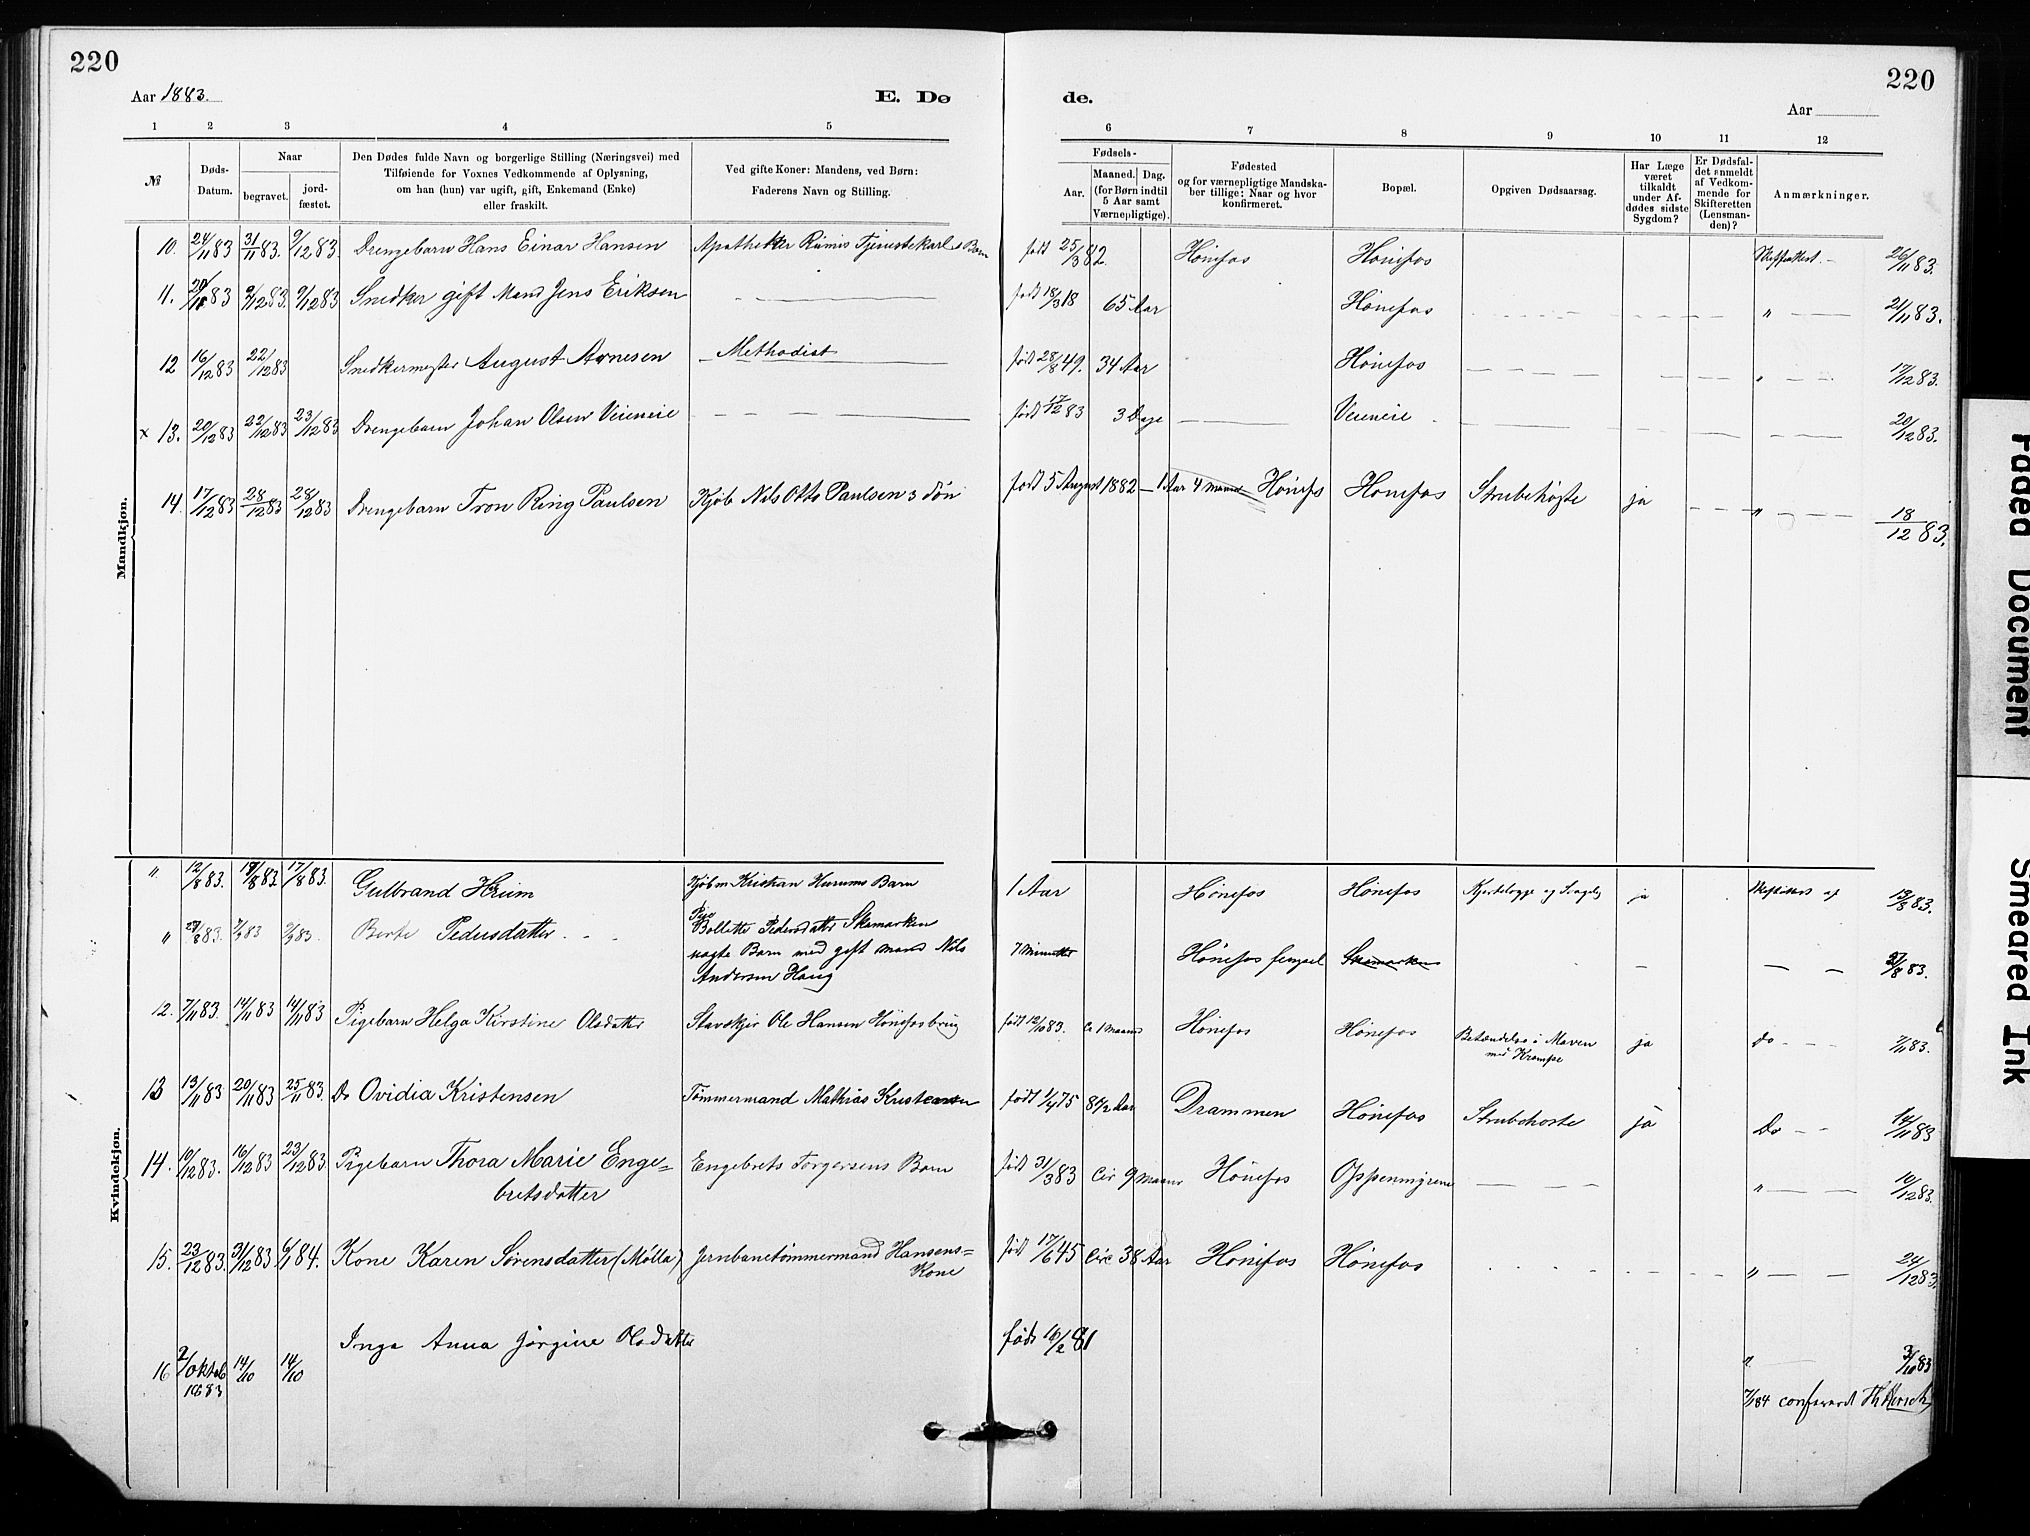 220
220
Aar 1883.
E. Dø
de.
Aar
1 2 3 4 5
6 7 8 9 10 11 12
№
Døds-
Datum.
Naar
begravet.
jord-
fæstet.
Den Dødes fulde Navn og borgerlige Stilling (Næringsvei) med
Tilføiende for Voxnes Vedkommende af Oplysning,
om han (hun) var ugift, gift, Enkemand (Enke)
eller fraskilt.
Ved gifte Koner: Mandens, ved Børn:
Faderens Navn og Stilling.
Fødsels-
Aar.
Maaned. Dag.
(for Børn indtil
5 Aar samt
Værnepligtige).
Fødested
og for værnepligtige Mandska-
ber tillige: Naar og hvor
konfirmeret.
Bopæl.
Opgiven Dødsaarsag.
Har Læge
været
tilkaldt
under Af-
dødes sidste
Sygdom?
Er Dødsfal-
det anmeldt
af Vedkom-
mende for
Skifteretten
(Lensman-
den)?
Anmærkninger.
Mandkjøn.
10. 24/11 83 31/11 83. 9/12 83 Drengebarn Hans Einar Hansen Apotheker Tjenestekarls Barn født 25/3 82. Hønefos Hønefos 26/11 83.
11. 20/11 83 9/12 83. 9/12 83 Snedker gift Mand Jens Eriksen født 18/3 18 65 Aar Hønefos " 21/11 83.
12 16/12 83 22/12 83 Snedkermester August Arnesen Methodist født 28/8 49. 34 Aar Hønefos " 17/12 83.
x 13. 20/12 83 22/12 83 23/12 83 Drengebarn Johan Olsen Veieneie født 17/12 83 3 Dage Veieneie 20/12 83.
14. 17/12 83 28/12 83 28/12 83 Drengebarn Tron Ring Paulsen Kjøb Nils Otto Paulsens Søn født 5 August 1882 – 1 Aar 4 Maaned Hønefos Hønefos Strubehoste ja " 18/12 83.
Kvindekjøn.
" 12/8 83. 17/8 83. 17/8 83. Gulbrand Hurum Kjøbm Kristian Hurums Barn 1 Aar Hønefos Hønefos ja 13/8 83.
" 27/8 83. 2/9 83 2/9 83. Berte Pedersdatter Pige
Bollette Pedersdatter Skamarken
uægte Barn med gift Mand Nils
Andersen Haug
7 Minutter Hønefos fengsel Skamarken 27/8 83.
12. 7/11 83. 14/11 83 14/11 83 Pigebarn Helga Kirstine Olsdatter Ole Hansen Hønefosbrug født 12/10 83. Ca 1 Maaned Hønefos Hønefos Betændelse i Maven
med Krampe
ja Do 7/11 83.
13 13/11 83 20/11 83 25/11 83 Do Ovidia Kristensen Tømmermand Mathias Kristensen født 1/4 75 8 1/2 Aar Drammen Hønefos Strubehoste ja Do 14/11 83
14. 10/12 83. 16/12 83 23/12 83 Pigebarn Thora Marie Enge=
bretsdatter
Engebret Torgersens Barn født 31/3 83 Cir 9 Maaned Hønefos Oppenmyrene " 10/12 83.
15. 23/12 83. 31/12 83 6/1 84. Kone Karen Sørensdatter (Mølla) Jernbanetømmermand Hansens=
Kone
født 17/6 45 Circ 38 Aar Hønefos Hønefos " 24/12 83.
16 2/oktob
1883
14/10 14/10 Inga Anna Jørgine Olsdatter født 16/2 81 " 3/10 83
7/1 84
Faded Document
Smeared Ink